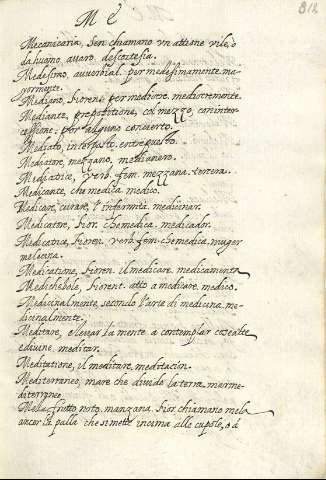 Me
312
Mecanicaria, Sen chiamano vn attione vile, o
da huomo auaro. descortesia.
Medesimo, auuerbial. per medesimamente. ma-
yormente.
Mediano, fioren. per mediocre. mediocremente.
Mediante, prepositione, col mezzo, con inter-
cessione. por alguno concierto.
Mediato, interposto. entrepuesto.
Mediatore, mezzano. medianero.
Mediatrice, verb. fem. mezzana. tercera.
Medicante, che medica. medico.
Medicare, curare l'infermità. medicinar.
Medicatore, fior. che medica. medicador.
Medicatrice, fioren. verb. fem. che medica. muger
medicina.
Medicatione, fioren. il medicare. medicamento
Medicheuole, fiorent. atto a medicare. medico.
Medicinalmente, secondo l'arte di medicina. me-
dicinalmente.
Meditare, eleuar la mente a contemplar cose alte
e diuine. meditar.
Meditatione, il meditare. meditaciòn.
Mediterraneo, mare che diuide la terra. mar me-
diterraneo.
Mela, frutto noto. manzana. fior. chiamano mela
ancor la palla che si mette in cima alle cupole, o à